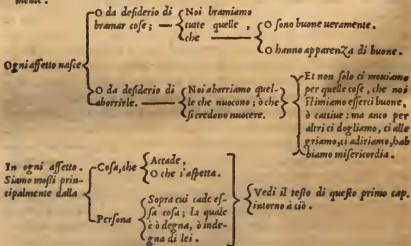 mente.
O da desiderio di
bramar cose; —
Noi bramiamo
tutte quelle,
che
O sono buone veramente.
O hanno apparenza di buone.
Ogni affetto nasce
O da desiderio di
aborrirle. —
Noi aborriamo quel-
le che nuocono; ò che
si credono nuocere.
Et non solo ci moviamo
per quelle cose, che noi
stimiamo esserci buone,
ò cattive: ma anco per
altri ci dogliamo, ci alle
griamo, ci adiriamo, hab
biamo misericordia.
In ogni affetto.
Siamo mossi prin-
cipalmente dalla
Cosa, che
Accade,
O che s'aspetta.
Persona
Sopra cui cade es-
sa cosa; la quale
è ò degna, ò inde-
gna di lei.
Vedi il testo di questo primo cap.
intorno à ciò.